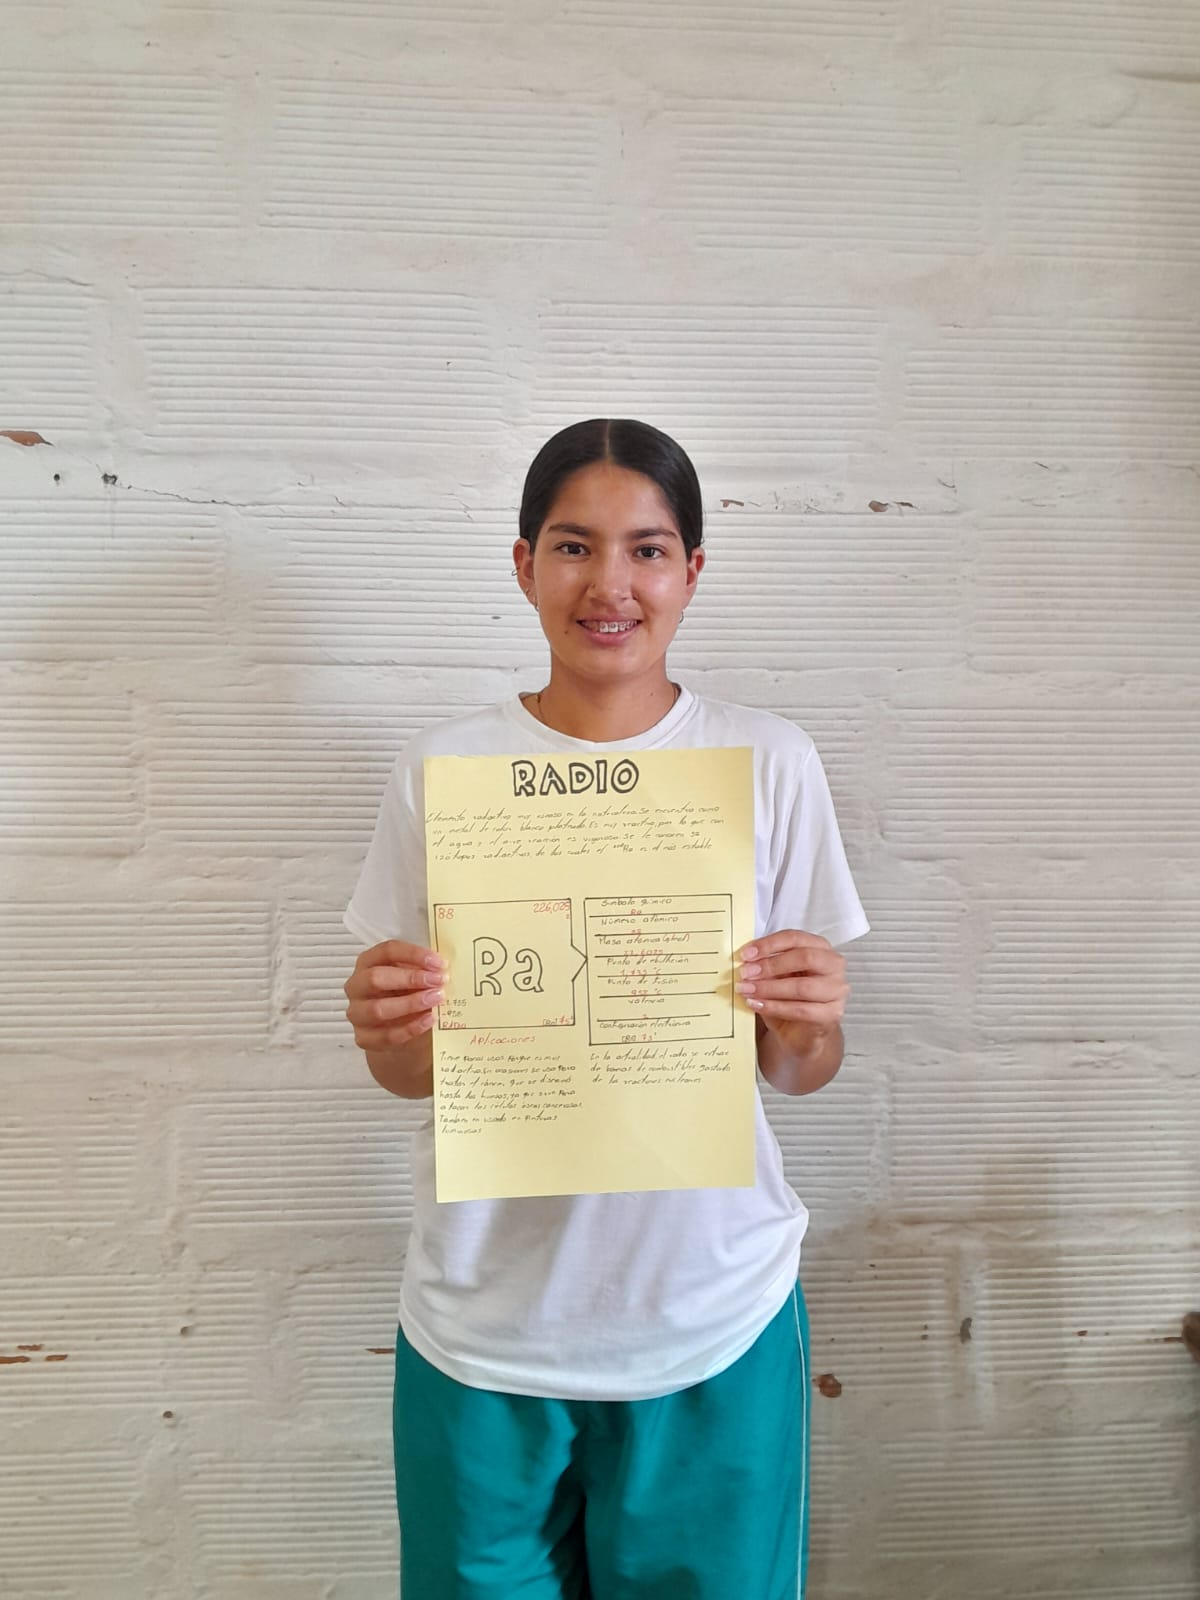 RADIO
Elemento radiactivo muy escaso en la naturaleza. Se encuentra como
un metal de color blanco plateado. Es muy reactivo, por lo que con
el agua y el aire reacción es vigorosa. Se le conocen
isótopos radiactivos, de los cuales el Ra es el más estable
88
226,025
2
Ra
-1.735
RADIO
Símbolo químico
Ra
Número atómico
88
Masa atómica
Punto de ebullición
1,735 °C
Punto de fusión
°C
Valencia
2
Configuración electrónica
7s²
Aplicaciones
Tiene pocos usos porque es muy
radiactivo. En ocasiones se usa para
tratar el cáncer, que se disemina
hasta los huesos, ya que sirve para
atacar las células óseas cancerosas.
También es usado en pinturas
luminosas
En la actualidad, el radio se extrae
de barras de combustibles gastado
de los reactores